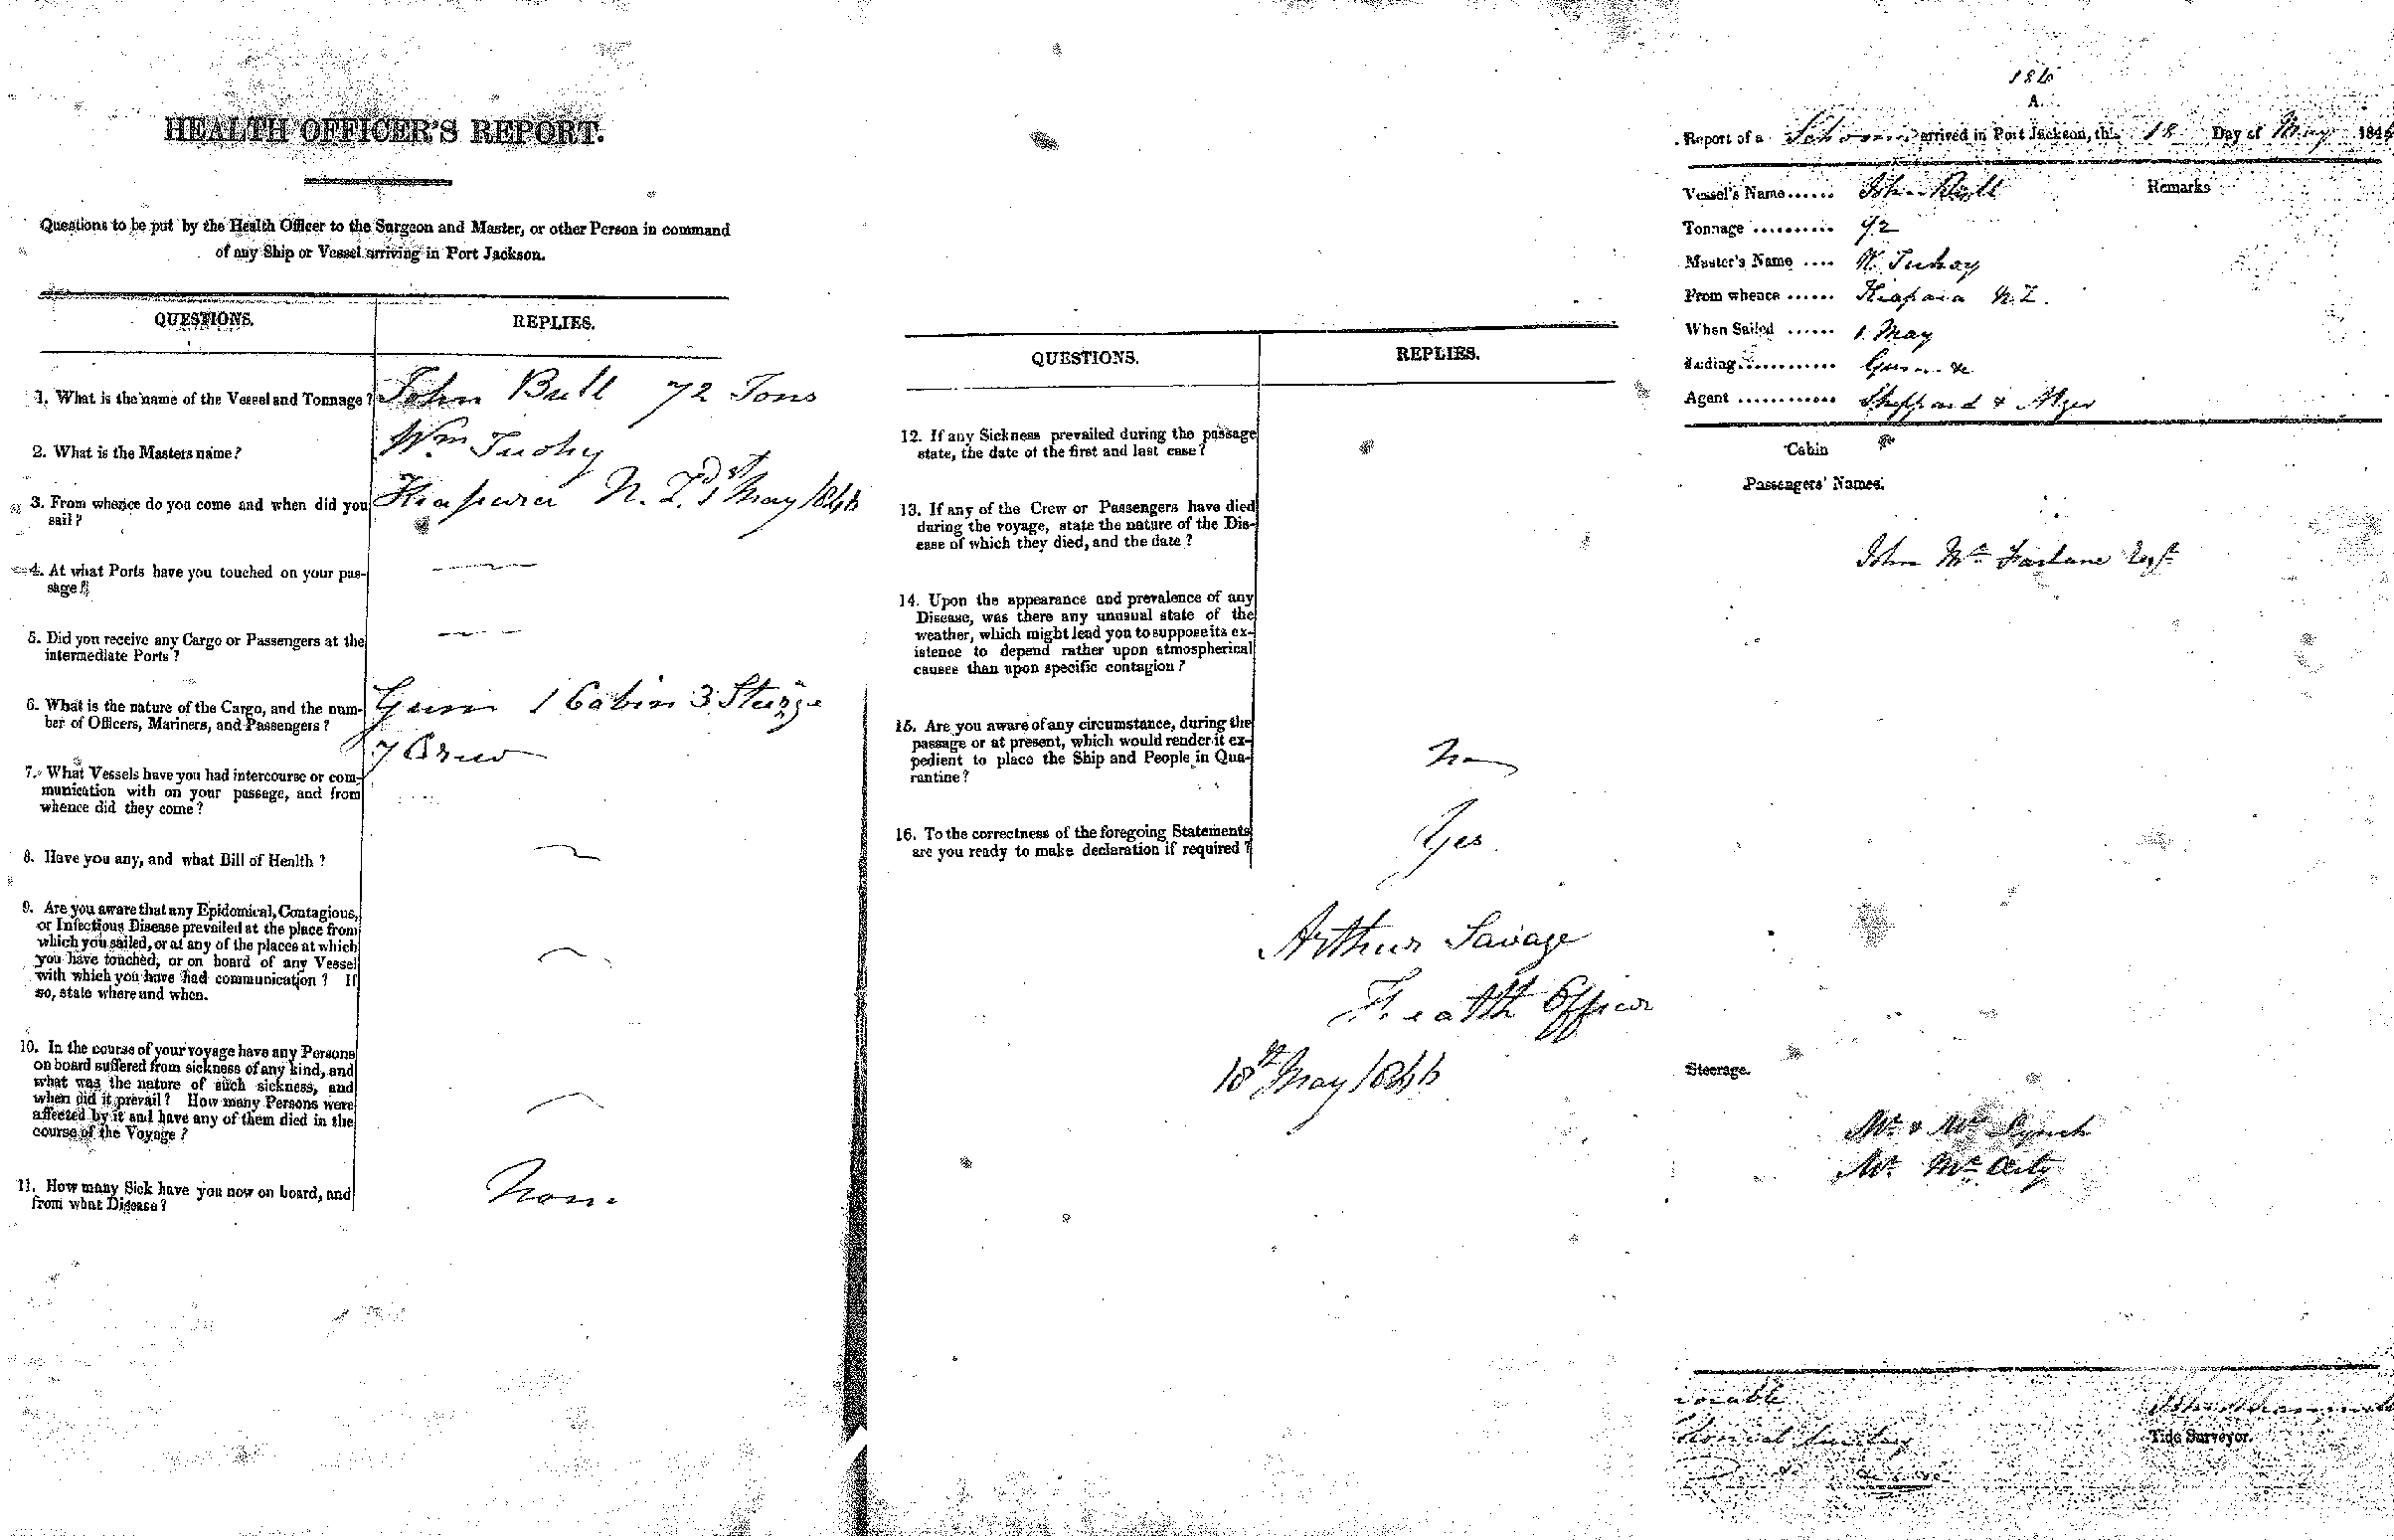 HEALTH OFFICER'S REPORT.
Questions to be put by the Health Officer to the Surgeon and Master, or other Person in command
of any Ship or Vessel arriving in Port Jackson.
QUESTIONS. REPLIES.
1. What is the name of the Vessel and Tonnage? John Bull 72 Tons
2. What is the Masters name? Wm Tuohy
3. From whence do you come and when did you N. Zd 1st May 1846
sail?
4. At what Ports have you touched on your pas-
sage?
5. Did you receive any Cargo or Passengers at the
intermediate Ports?
6. What is the nature of the Cargo, and the num- Gum 1 Cabin 3 Steerge
ber of Officers, Mariners, and Passengers?
7 Crew
7. What Vessels have you had intercourse or com-
munication with on your passage, and from
whence did they come?
8. Have you any, and what Bill of Health?
9. Are you aware that any Epidemical, Contagious,
or Infectious Disease prevailed at the place from
which you sailed, or at any of the places at which
you have touched, or on board of any Vessel
with which you have had communication? If
so, state where and when.
10. In the course of your voyage have any Persons
on board suffered from sickness of any kind, and
what was the nature of such sickness, and
when did it prevail? How many Persons were
affected by it and have any of them died in the
course of the Voyage?
11. How many Sick have you now on board, and None
from what Disease?
QUESTIONS. REPLIES.
12. If any Sickness prevailed during the passage
state, the date of the first and last case?
13. If any of the Crew or Passengers have died
during the voyage, state the nature of the Dis-
ease of which they died, and the date?
14. Upon the appearance and prevalence of any
Disease, was there any unusual state of the
weather, which might lead you to suppose its ex-
istence to depend rather upon atmospherical
causes than upon specific contagion?
15. Are you aware of any circumstance, during the
passage or at present, which would render it ex- No
pedient to place the Ship and People in Qua-
rantine?
16. To the correctness of the foregoing Statements Yes
are you ready to make declaration if required?
Arthur Savage
Health Officer
18th May 1846
A.
Report of a Schooner arrived in Port Jackson, this 18 Day of May 1846
Vessel's Name...... John Bull Remarks
Tonnage .......... 72
Master's Name .... W. Tuhoy
From whence ...... N. Z.
When Sailed ...... 1 May
Lading............ Gum &c
Agent ............ Sheppard & Alger
Cabin
Passengers' Names.
John Mc Farlane Esqr
Steerage.
Mr & Mrs Lynch
Mr Mc Arty
Tide Surveyor.